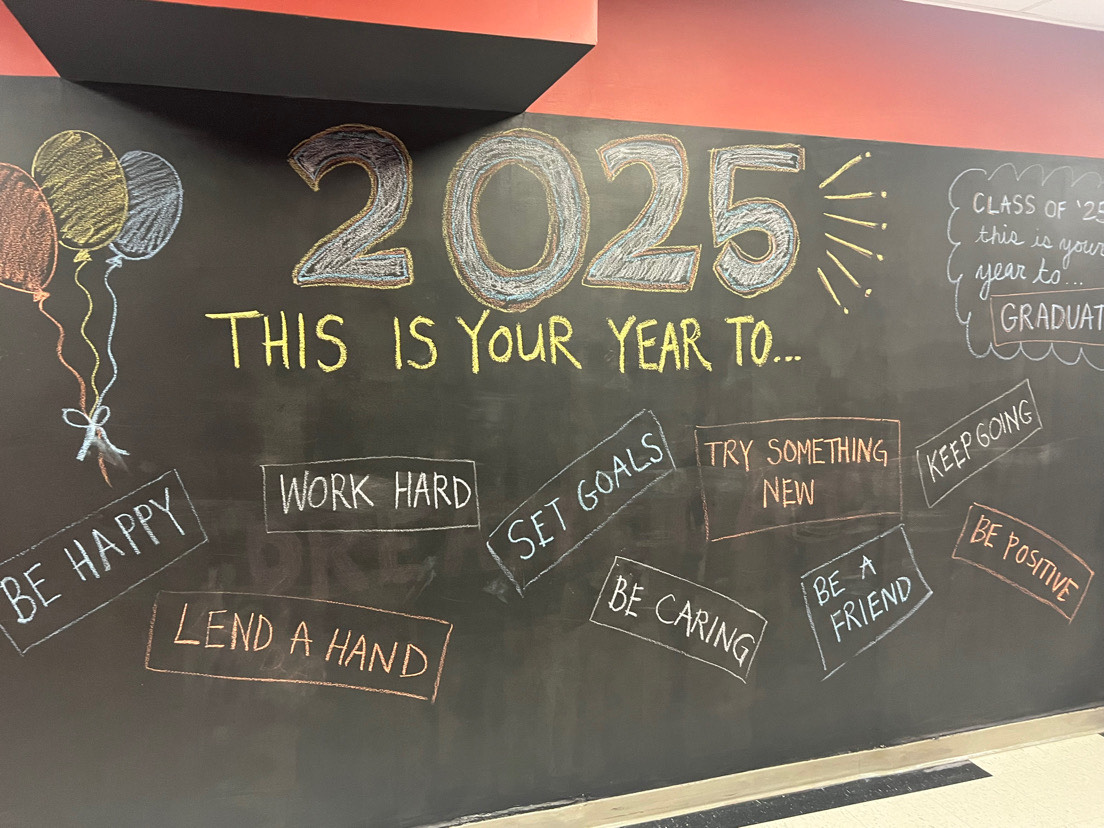 2025
THIS IS YOUR YEAR TO...
CLASS OF '25
this is your
year to...
GRADUAT
BE HAPPY
WORK HARD
SET GOALS
TRY SOMETHING
NEW
KEEP GOING
LEND A HAND
BE CARING
BE A
FRIEND
BE POSITIVE